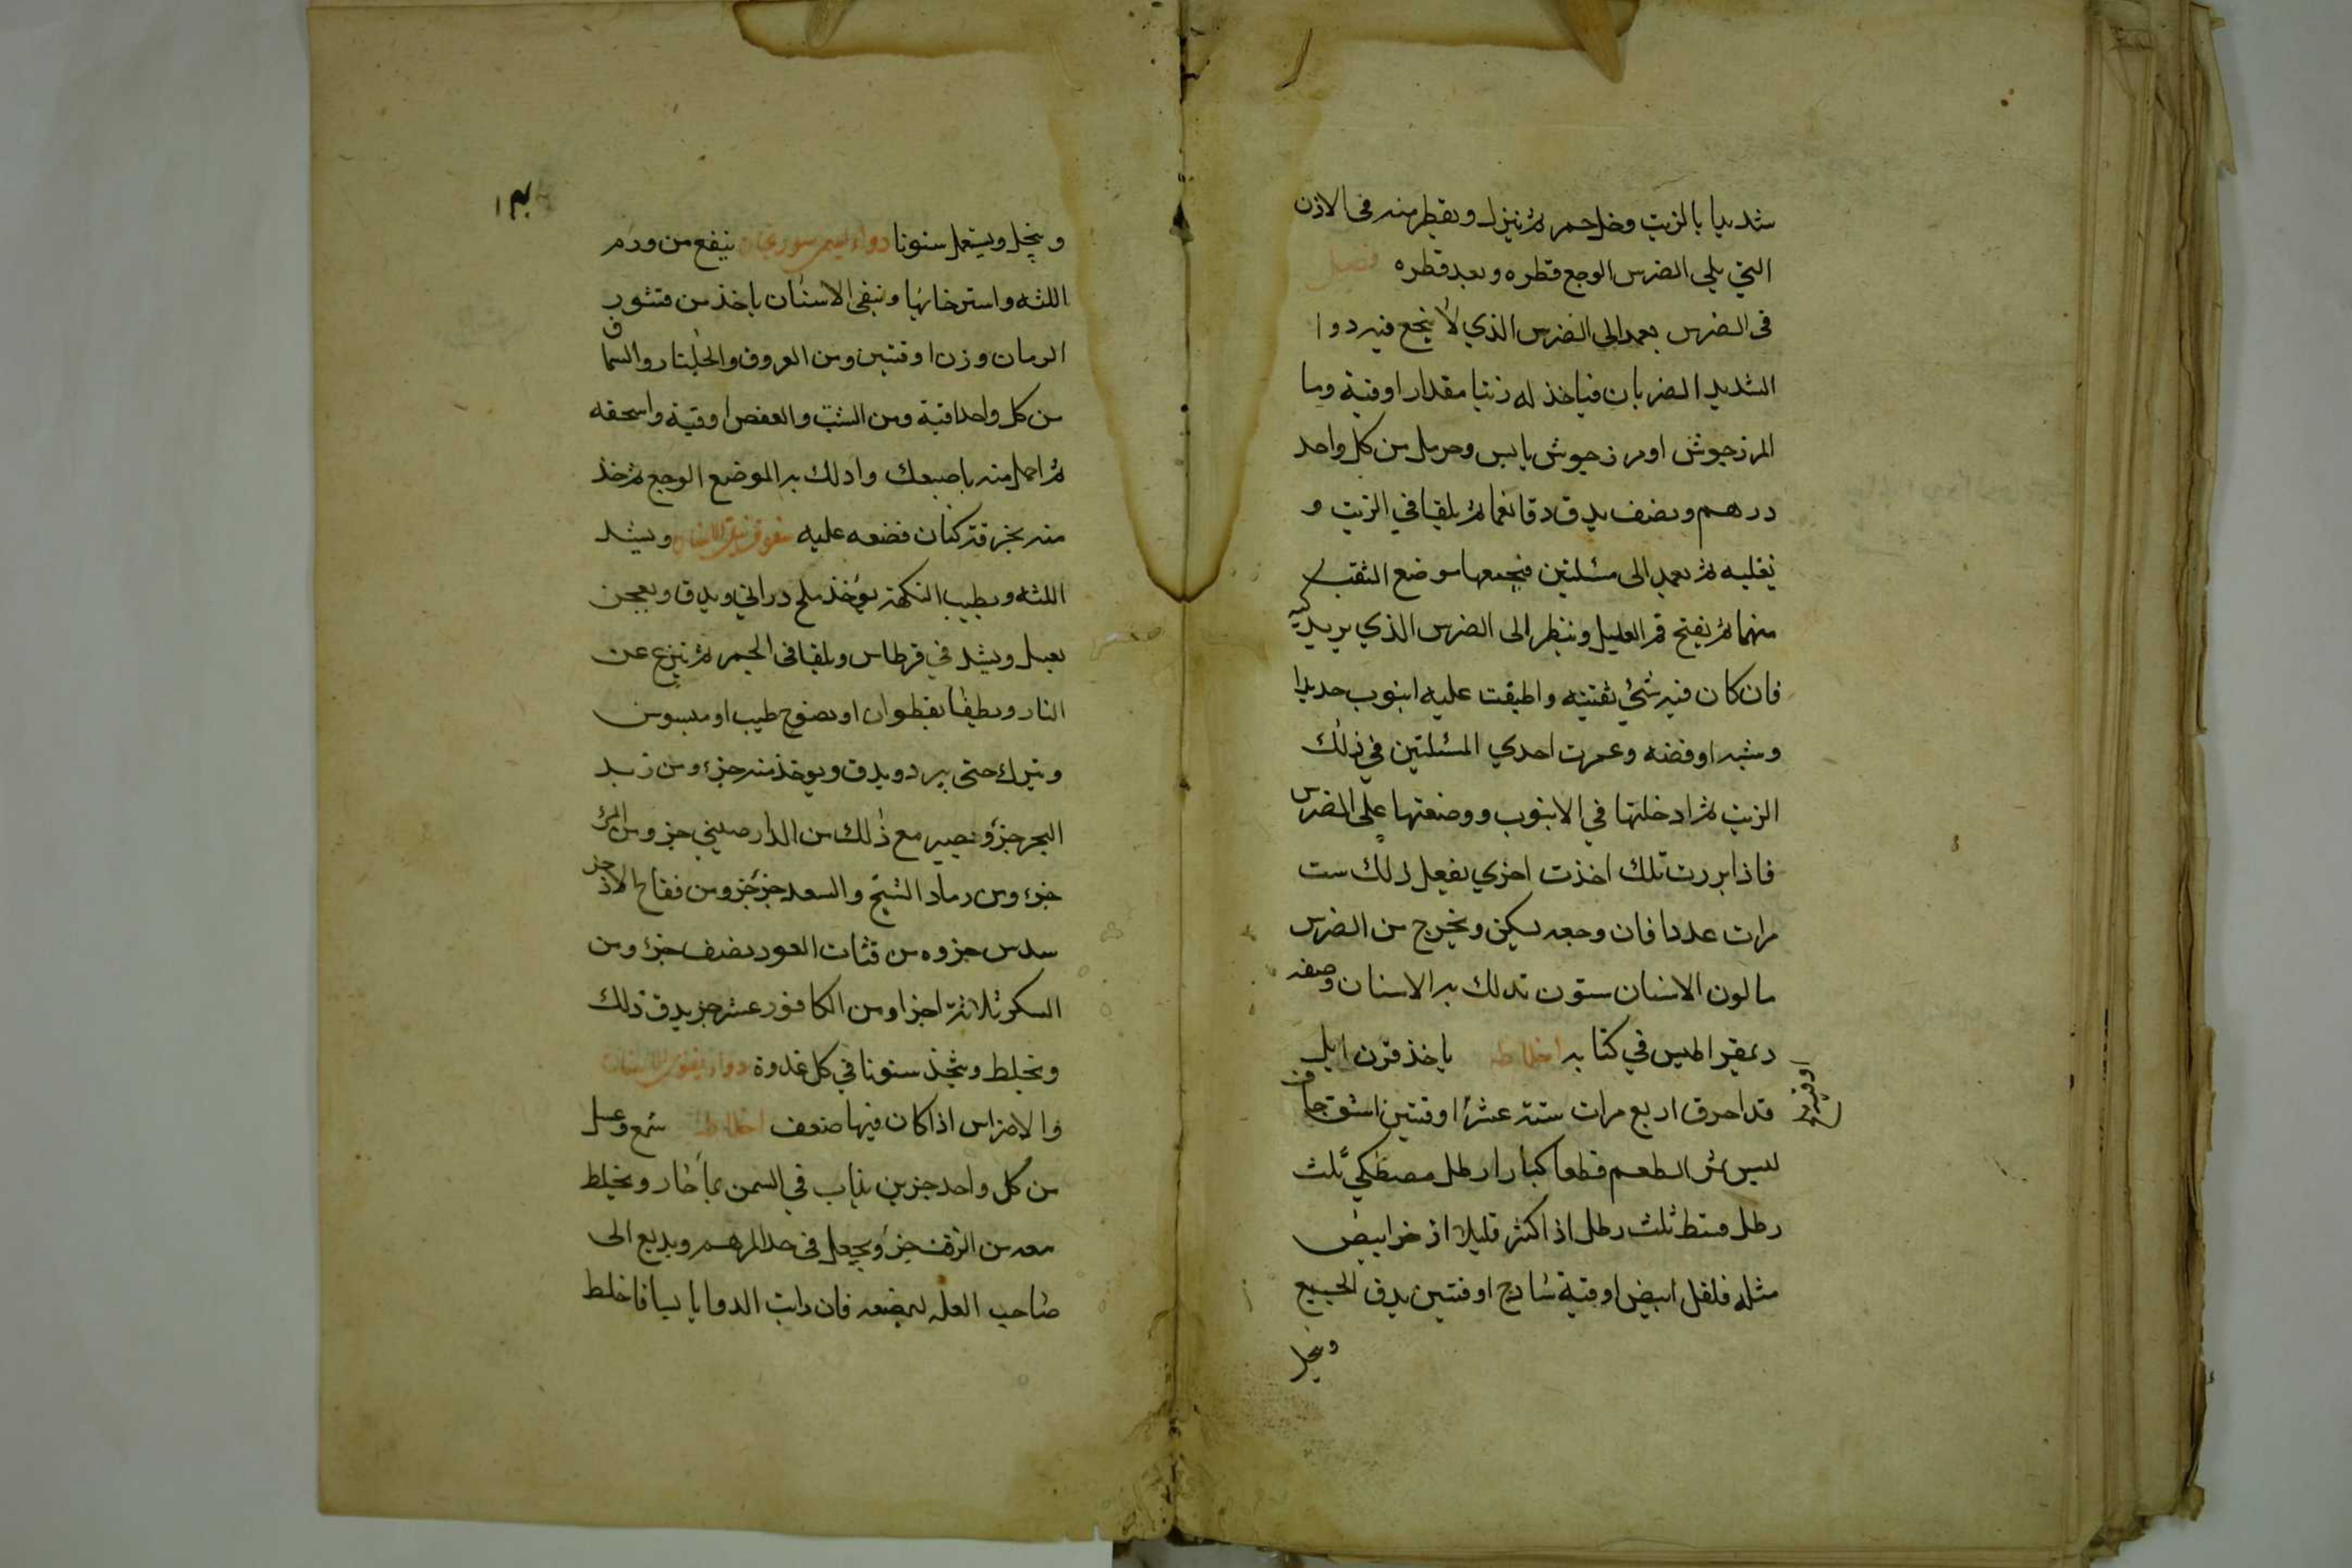 شديدا بالزيت وخل خمر ثم ينزل ويقطر منه فى الاذن
التي يلي الضرس الوجع قطره وبعد قطره فصل
فى الضرس يعمد الى الضرس الذي لا ينجع فيه دوا
الشديد الضربان فياخذ له زيتا مقدار اوقية وما
المرزجوش او مرزجوش يابس وحرمل من كل واحد
درهم ونصف يدق دقا نعما ثم يلقيا في الزيت و
نغليه ثم يعمد الى مسلتين فيجمعها موضع الثقب
منهما ثم يفتح فم العليل وينظر الى الضرس الذي يريد كيه
فان كان فيه شئ نقيته واطبقت عليه انبوب حديدا
وشبه او فضه وغمرت احدي المسلتين في ذلك
الزيت ثم ادخلتها في الانبوب ووضعتها على الضرس
فاذا بردت تلك اخذت اخري يفعل ذلك ست
مرات عددا فان وجعه يسكن ويخرج من الضرس
ما لون الاسنان سنون تدلك به الاسنان وصفه
دىمقراطيس في كتابه اخلاطه ياخذ قرن ايل
قد احرق اربع مرات ستة عشر اوقيتين اشق جاف
ليس بمر الطعم قطعا كبارا رطل مصطكي ثلث
رطل قسط ثلث رطل اذا كثر قليلا اذخر ابيض
مثله فلفل ابيض اوقية شادج اوقتين يدق الجميع
وينخل
وينخل ويستعمل سنونا دواء ينفع من ورم
اللثه واسترخايها وينقي الاسنان ياخذ من قشور
الرمان وزن اوقتين ومن العروق والجلنار والسماق
من كل واحد اقية ومن الشب والعفص اوقية واسحقه
ثم احمل منه باصبعك وادلك به الموضع الوجع ثم خذ
منه بخرقة كتان فضعه عليه ويشد
اللثه ويطيب النكهة يؤخذ ملح دراني ويدق ويعجن
بعسل ويشد في قرطاس ويلقا فى الجمر ثم ينزع عن
النار ويطفا بقطران او نضوح طيب او ميسوسن
ويترك حتى يبرد ويدق ويوخذ منه جزء ومن زبد
البحر جزؤ ويصير مع ذلك من الدار صيني جز ومن المر
جزء ومن رماد الشيح والسعد جزء جزو ومن فقاح الاذخر
سدس جزو ومن قتات العود نصف جزء ومن
السكر ثلاثة اجزا ومن الكافور عشر جز يدق ذلك
ويخلط ويتخذ سنونا في كل غدوة دواء يقوي الاسنان
والاضراس اذا كان فيها ضعف اخلاطه شمع وعسل
من كل واحد جزين يذاب في السمن بما حار ويخلط
معه من الزفت جزء ويجعل فى حد المرهم ويدفع الى
صاحب العله ليمضغه فان رايت الدوا يابسا فاخلط